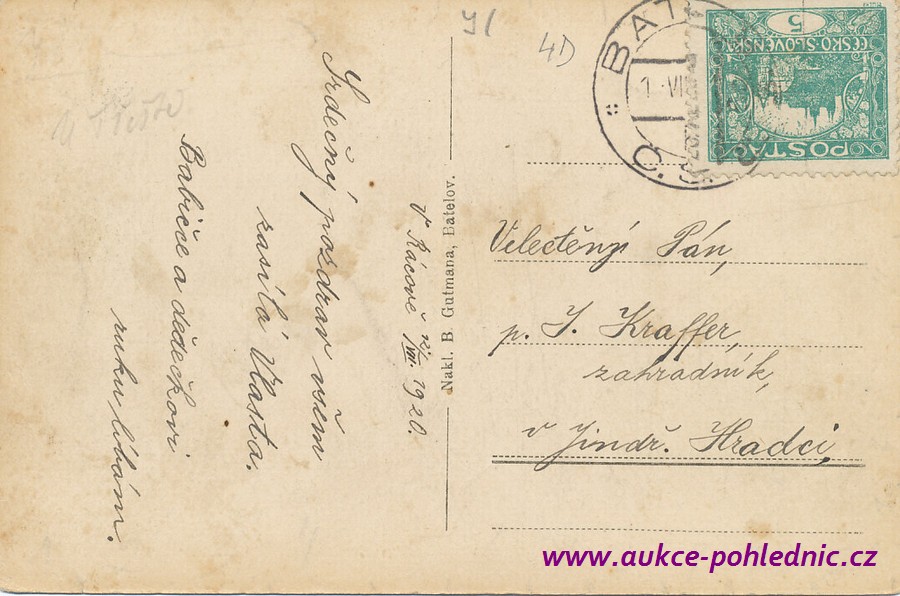 Srdečný pozdrav všem
zasílá Vlasta.
Babičce a dědečkovi
ruku líbám.
v Rácově 12/VII. 1920.
Nakl. B. Gutmana, Batelov.
yl
4D
BAT
1. VII
5
ČESKO-SLOVENSKÁ
POSTA
Velectěný Pán,
p. J. Kraffer,
zahradník,
v Jindř. Hradci,
www.aukce-pohlednic.cz